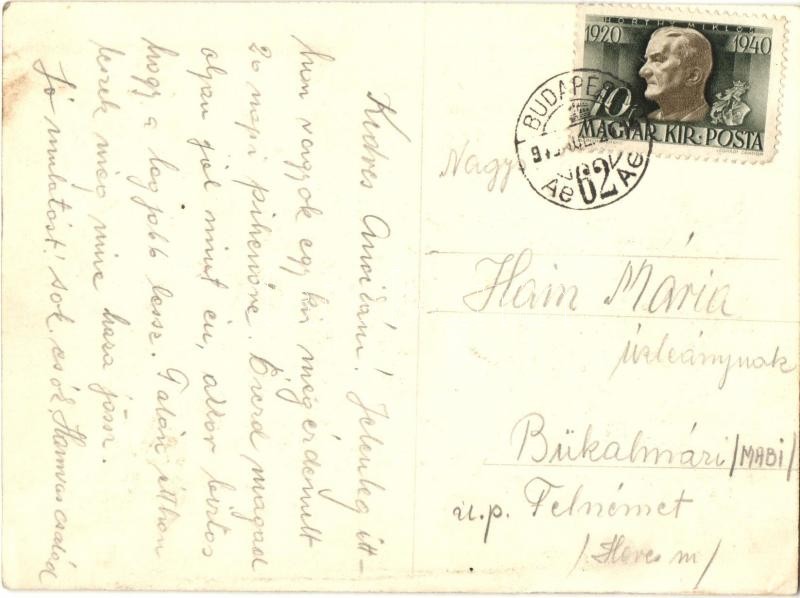 Kedves Ancikám! Jelenleg itt-
hon vagyok egy kis megérdemelt
20 napi pihenőre. Érezd magad
olyan jól mint én, akkor biztos
hogy a legjobb lessz. Talán itthon
leszek még mire haza jössz.
Jó mulatást! sok csók, Hamvas család
HORTHY MIKLÓS
1920 1940
10
MAGYAR KIR. POSTA
BUDAPEST
62
Nagys
Hain Mária
úrleánynak
Bükalmári /MABI/
u.p. Felnémet
/Heves m/